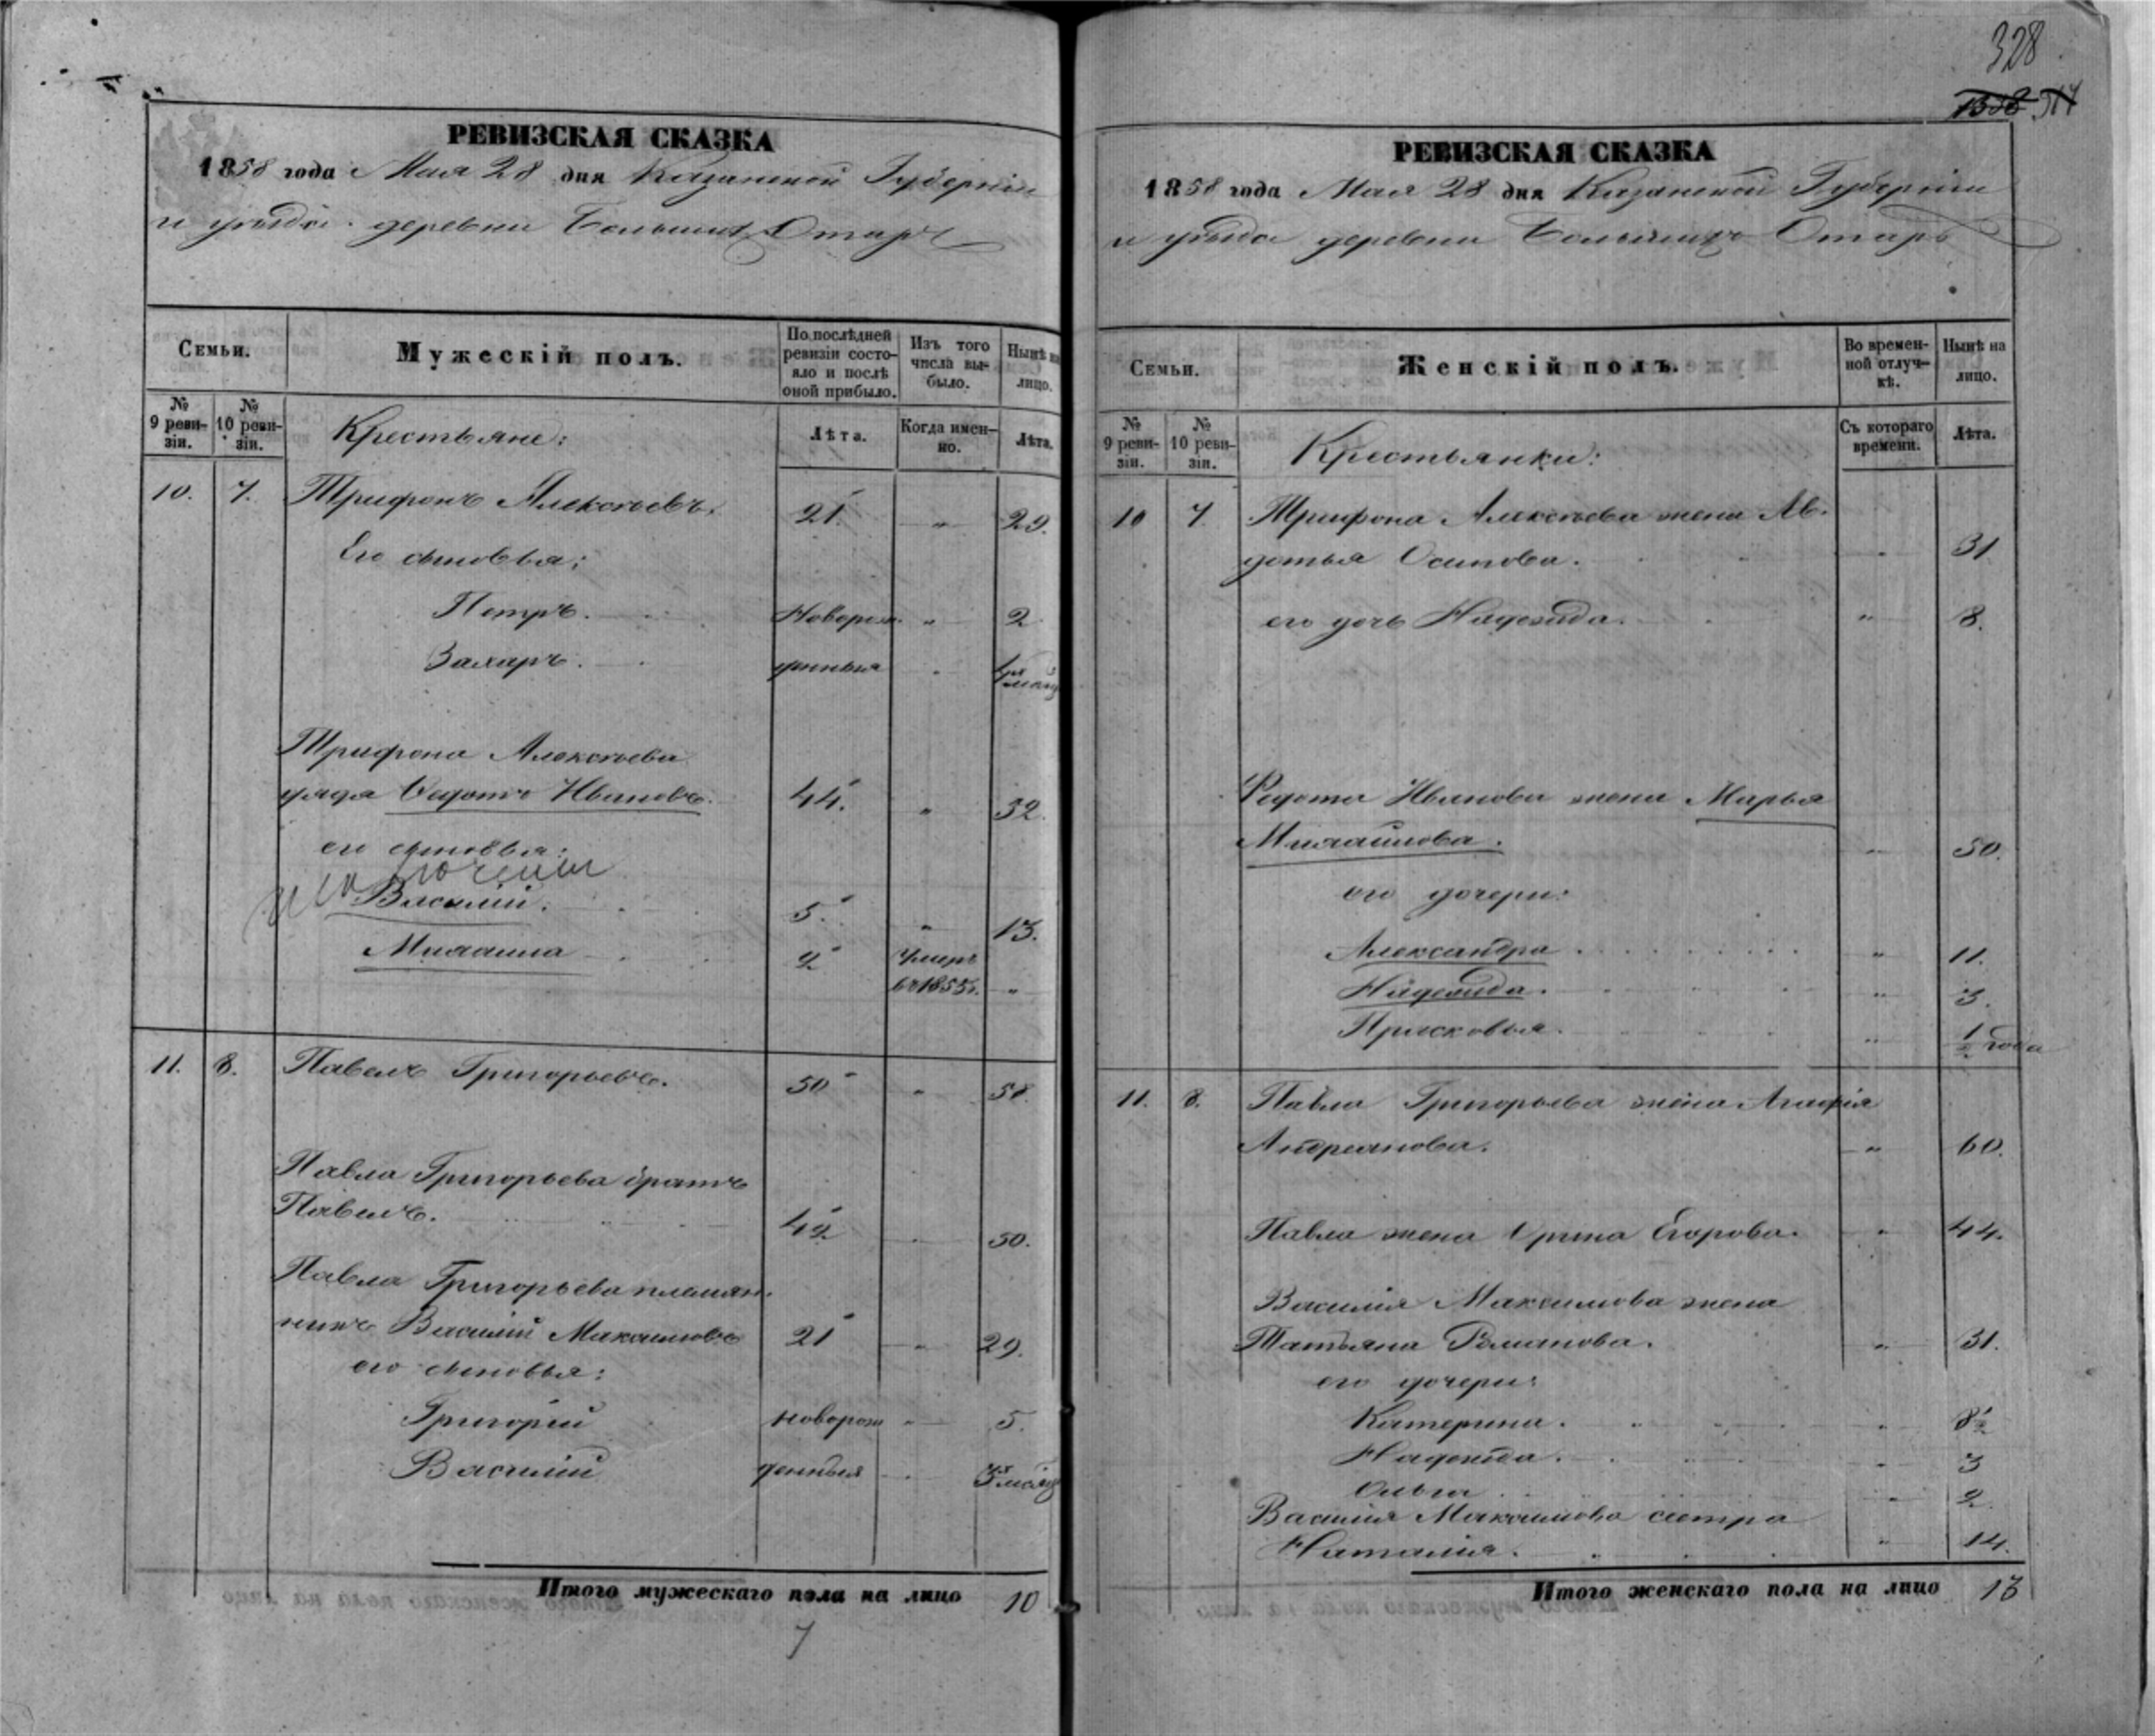 РЕВИЗСКАЯ СКАЗКА
1858 года Мая 28 дня Казанской Губерніи
и уѣзда деревни Большихъ Отаръ
Семьи.
Мужескій полъ.
По послѣдней ревизіи состояло и послѣ оной прибыло.
Изъ того числа выбыло.
Нынѣ на лицо.
№ 9 ревизіи.
№ 10 ревизіи.
Крестьяне:
Лѣта.
Когда именно.
Лѣта.
10. 7. Трифонъ Алексѣевъ. 21. " 29.
Его сыновья:
Петръ. Новорож " 2
Захаръ. денныя
Трифона Алексѣева
дядя Ѳедотъ Ивановъ. 44. " 52.
его сыновья:
Василій. 5. " 13.
Михаила 2 Умеръ
въ 1855 г. "
11. 8. Павелъ Григорьевъ. 50 " 58.
Павла Григорьева братъ
Павелъ. 42 " 50.
Павла Григорьева племян-
никъ Василій Максимовъ 21 " 29.
его сыновья:
Григорій новорож " 5.
Василій денныя
Итого мужескаго пола на лицо 10
7
328
РЕВИЗСКАЯ СКАЗКА
1858 года Мая 28 дня Казанской Губерніи
и уѣзда деревни Большихъ Отаръ
Семьи.
Женскій полъ.
Во временной отлучкѣ.
Нынѣ на лицо.
№ 9 ревизіи.
№ 10 ревизіи.
Крестьянки:
Съ котораго времени.
Лѣта.
10 7 Трифона Алексѣева жена Ав-
дотья Осипова. " 31
его дочь Надежда. " 8.
Федота Иванова жена Марья
Михайлова. " 50.
его дочери:
Александра " 11.
Надежда. " 3.
Прасковья. " 1/2 года
11. 8. Павла Григорьева жена Агафія
Андреянова. " 60.
Павла жена Ирина Егорова. " 44.
Василія Максимова жена
Татьяна Романова. " 31.
его дочери:
Катерина. " 8 1/2
Надежда. " 3
Ольга " 2.
Василія Максимова сестра
Наталия. " 14.
Итого женскаго пола на лицо 13